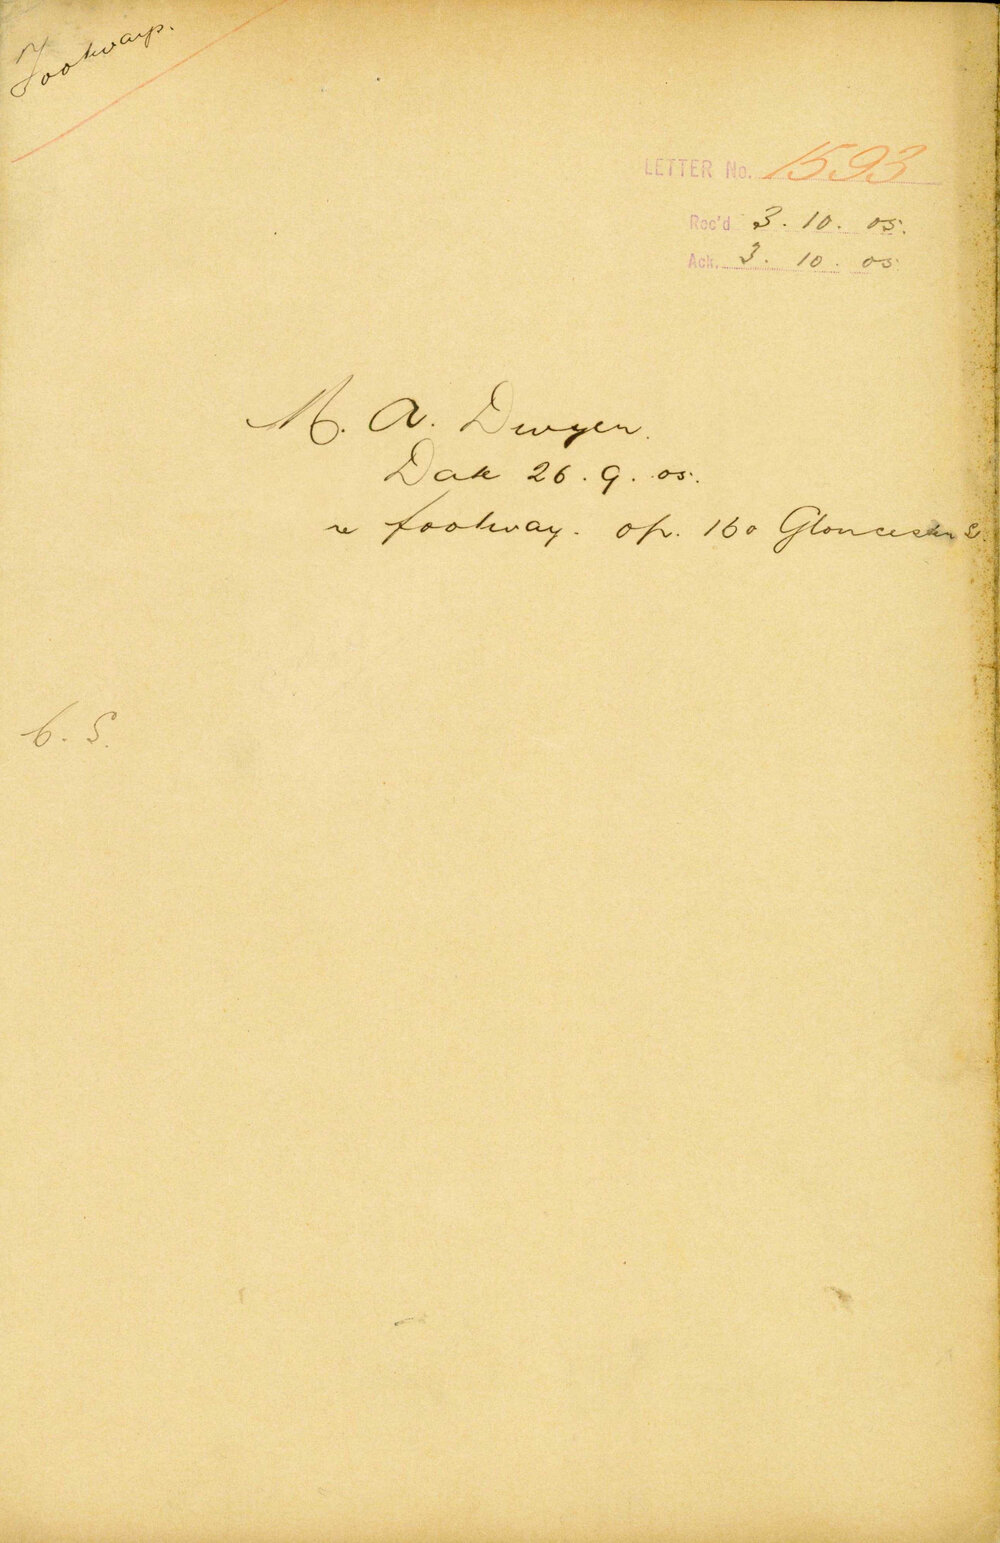 Footways.
LETTER No. 1593
Rec'd 3. 10. 05.
Ack. 3. 10. 05
M. A. Dwyer.
Date 26. 9. 05.
re footway. op. 160 Gloucester St.
C. S.